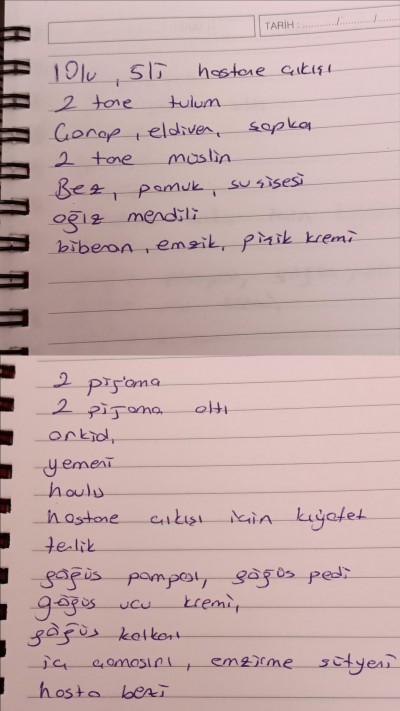 TARİH : ............/............/............
10lu, 5li hastane çıkışı
2 tane tulum
Çorap, eldiven, şapka
2 tane müslin
Bez, pamuk, su şişesi
ağız mendili
biberon, emzik, pişik kremi
2 pijama
2 pijama altı
orkid,
yemeni
havlu
hastane çıkışı için kıyafet
terlik
göğüs pompası, göğüs pedi
göğüs ucu kremi,
göğüs kalkanı
iç çamaşırı, emzirme sütyeni
hasta bezi